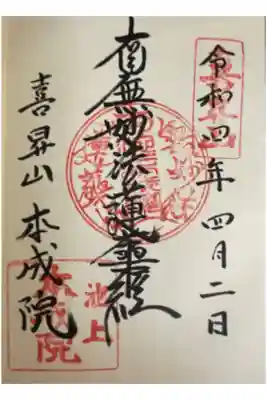 令和四年 四月二日
南無妙法蓮華經
喜昇山 本成院
池上
本成院